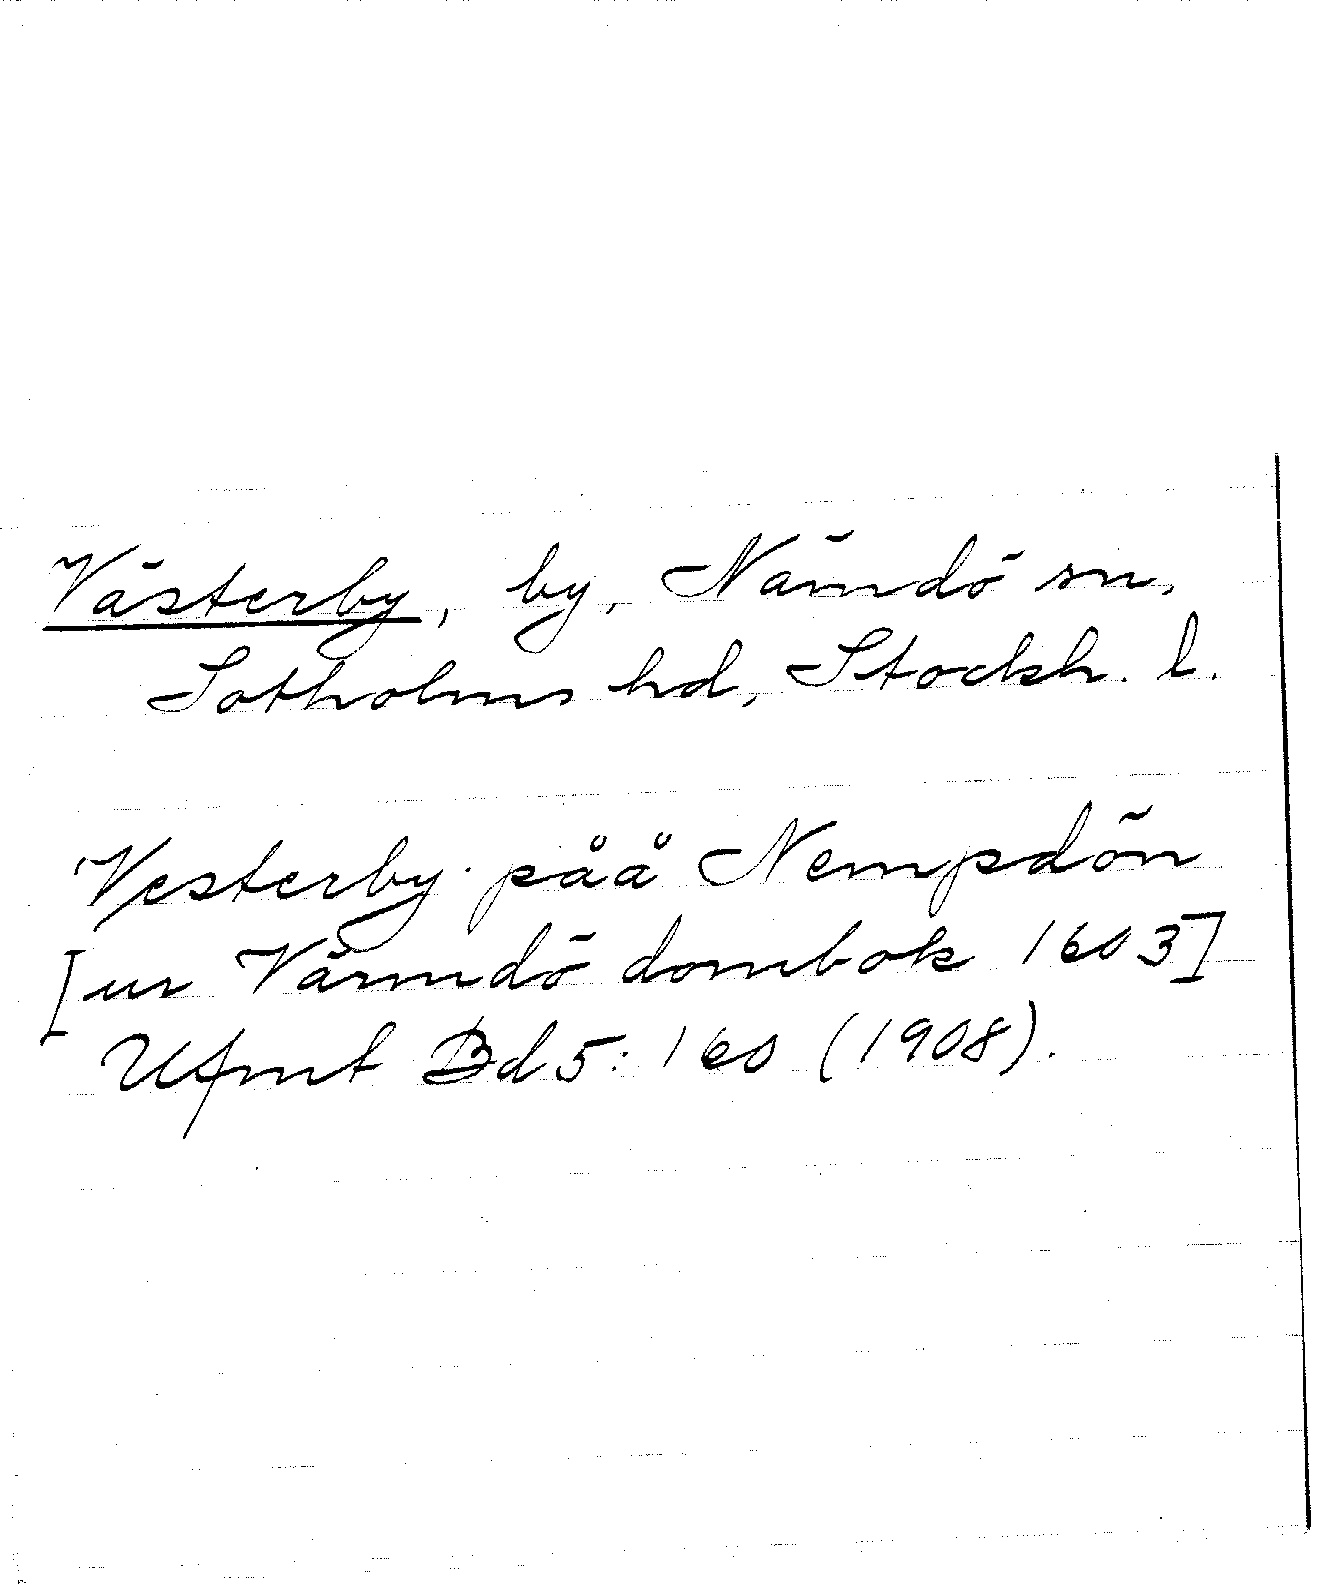 Västerby, by, Nämdö sn,
Sotholms hd, Stockh. l.
Vesterby påå Nempdön
[ur Värmdö dombok 1603]
Ufmt Bd 5: 160 (1908).